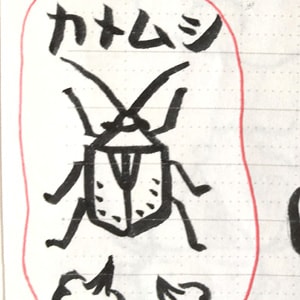 カメムシ